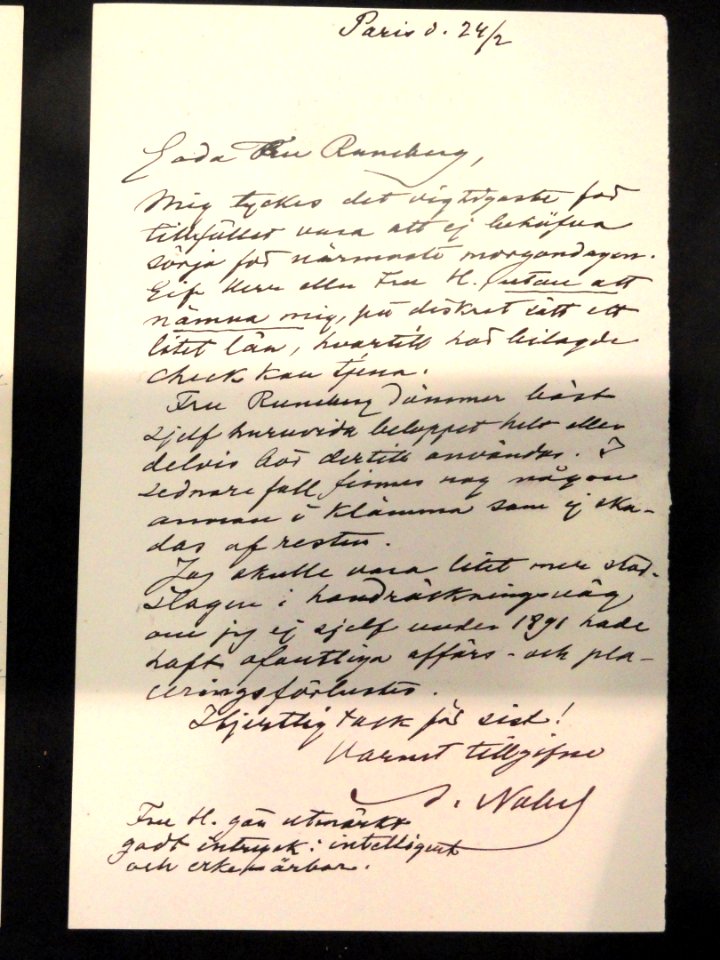 Paris d. 24/2
Goda Fru Runeberg,
Mig tyckes det vigtigaste för
tillfället vara att ej behöfva
sörja för närmaste morgondagen.
Gif Herr eller Fru H. utan att
nämna mig, på diskret sätt ett
litet lån, hvartill här bilagde
check kan tjena.
Fru Runeberg dömmer bäst
sjelf huruvida beloppet helt eller
delvis bör dertill användas. I
sednare fall finnes nog någon
annan i klämma som ej ska-
das af resten.
Jag skulle vara litet mer stor-
slagen i handräckningsväg
om jag ej sjelf under 1891 hade
haft ofantliga affärs- och pla-
ceringsförluster.
Hjertlig tack för sist!
Varmt tillgifne
A. Nobel
Fru H. gör utmärkt
godt intryck: intelligent
och ärbar.